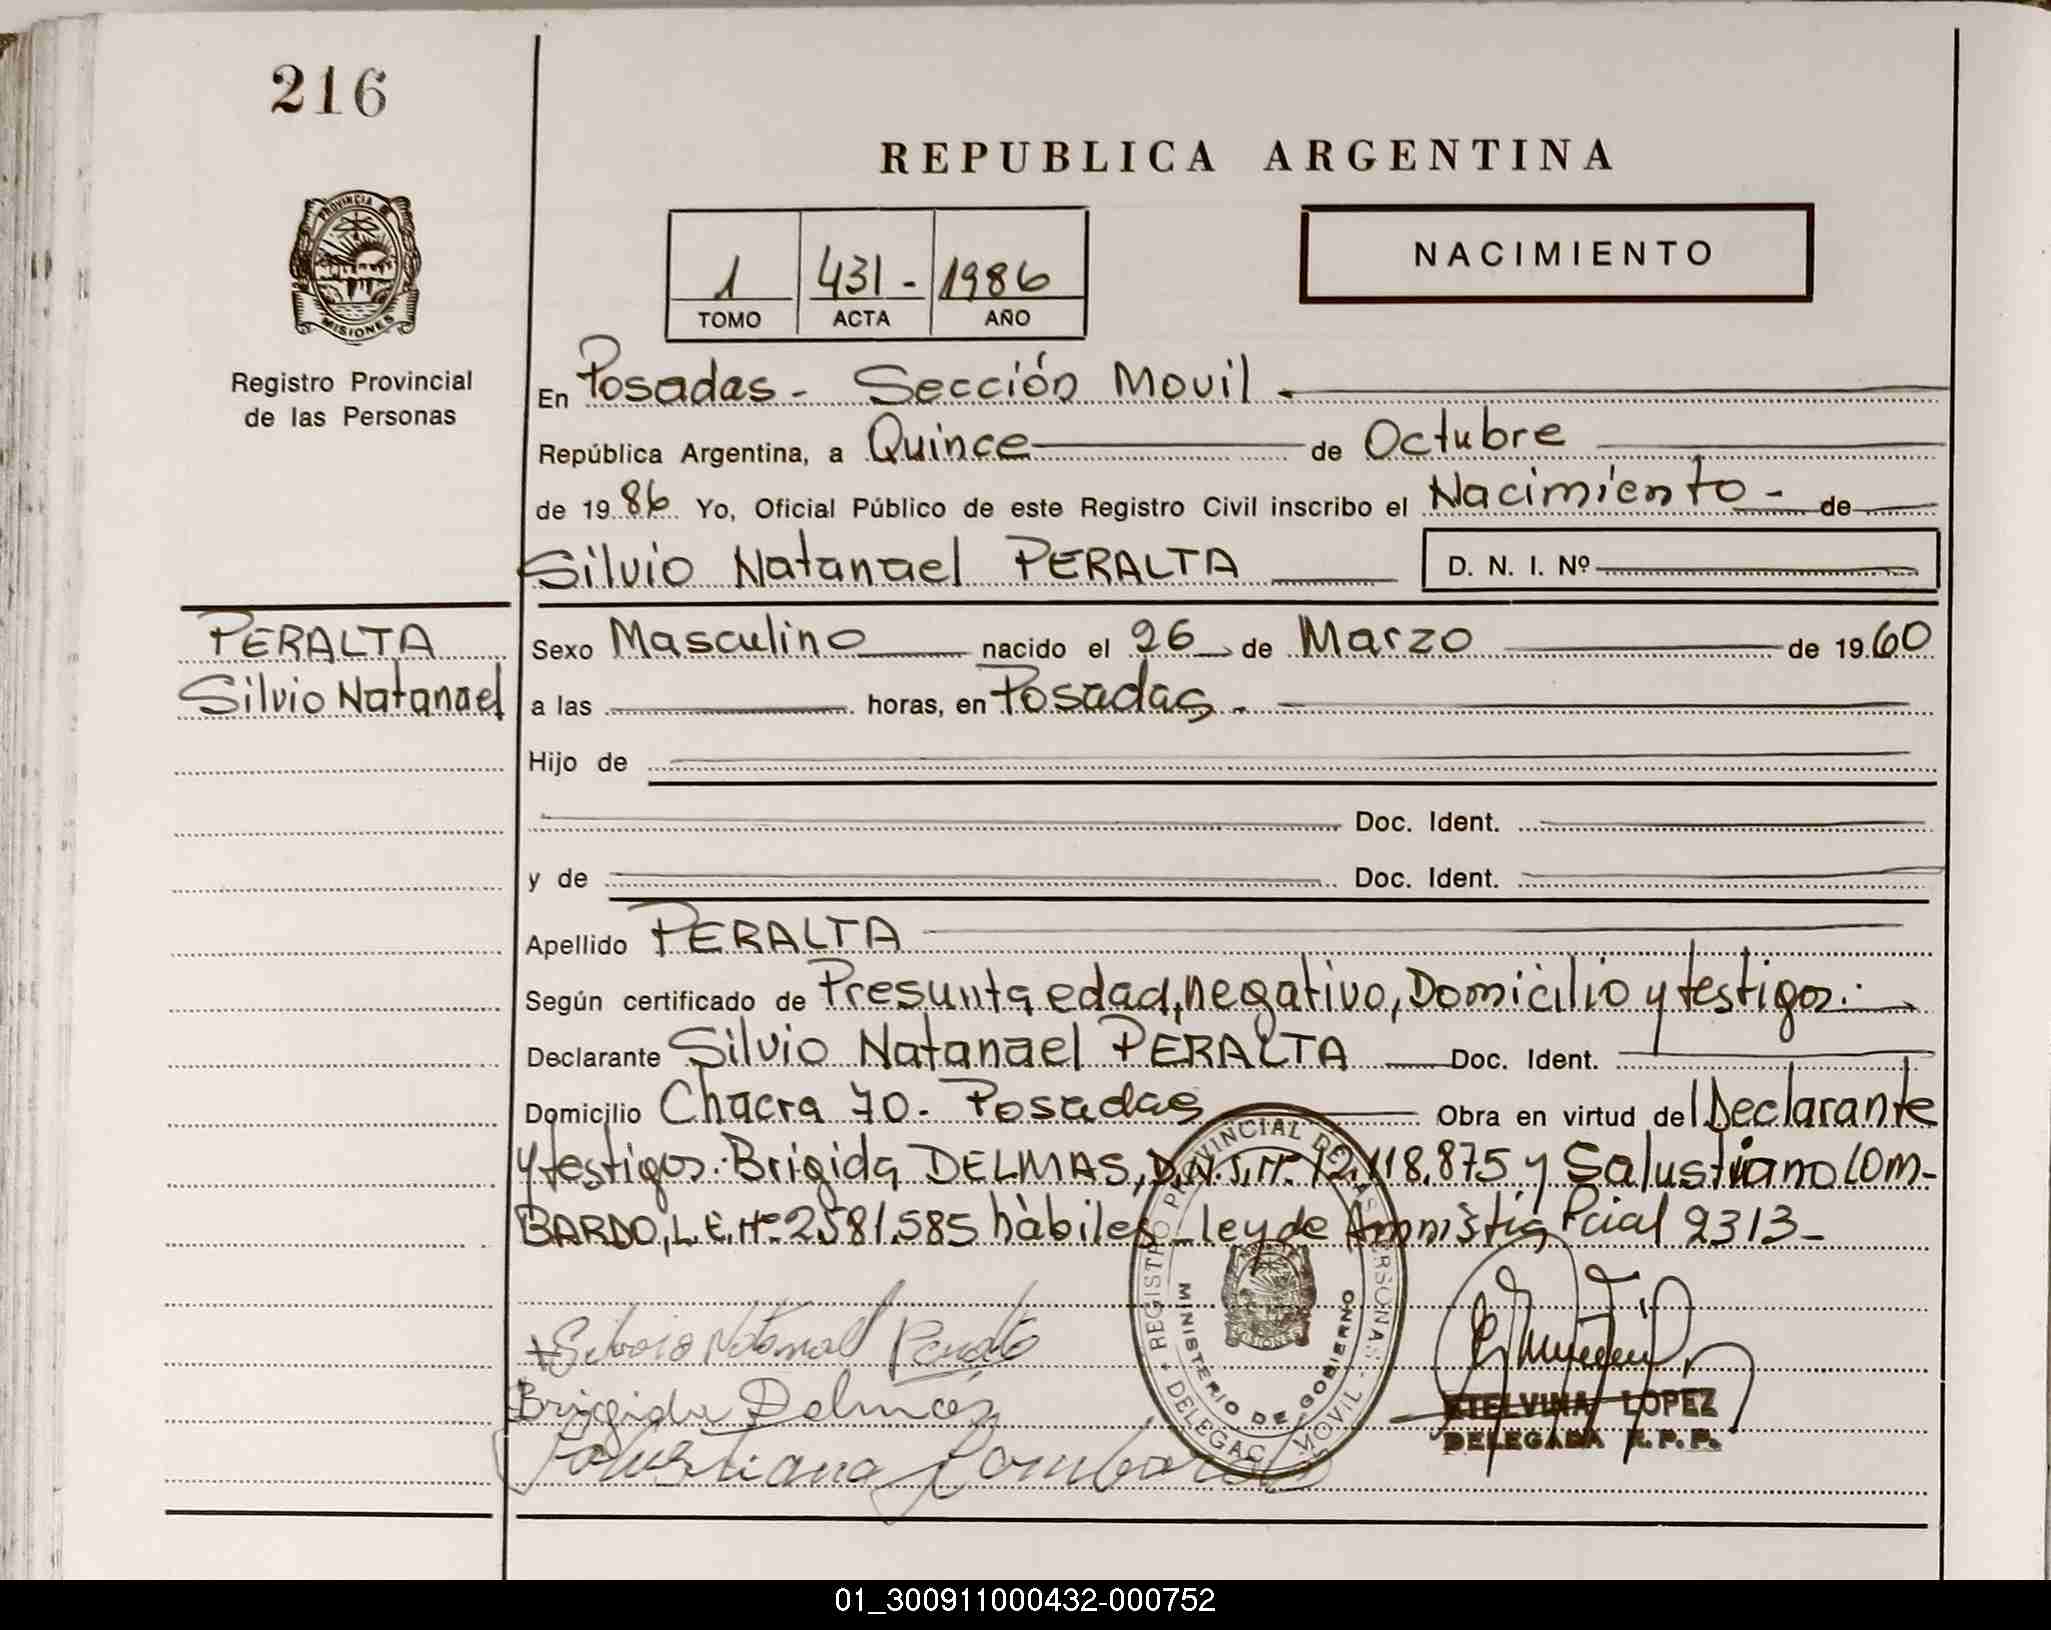 216
REPUBLICA ARGENTINA
PROVINCIA DE
MISIONES
Registro Provincial
de las Personas
1 431 - 1986
TOMO ACTA AÑO
NACIMIENTO
En Posadas - Sección Movil
República Argentina, a Quince de Octubre
de 1986 Yo, Oficial Público de este Registro Civil inscribo el Nacimiento - de
Silvio Natanael PERALTA D. N. I. Nº
PERALTA
Silvio Natanael
Sexo Masculino nacido el 26 de Marzo de 1960
a las horas, en Posadas -
Hijo de
Doc. Ident.
y de Doc. Ident.
Apellido PERALTA
Según certificado de Presunta edad, negativo, Domicilio y testigos.
Declarante Silvio Natanael PERALTA Doc. Ident.
Domicilio Chacra 70 - Posadas Obra en virtud del Declarante
y testigos: Brigida DELMAS, D.N.I. Nº 12.118.875 y Salustiano LOM-
BARDO, L.E. Nº 2.581.585 hàbiles - ley de Amnistia Pcial 2313 -
REGISTRO PROVINCIAL DE LAS PERSONAS
MINISTERIO DE GOBIERNO
DELEGAC. MOVIL
Silvio Natanael Peralta
Brigida Delmas
Salustiano Lombardo
ETELVINA LOPEZ
DELEGADA R.P.P.
01_300911000432-000752